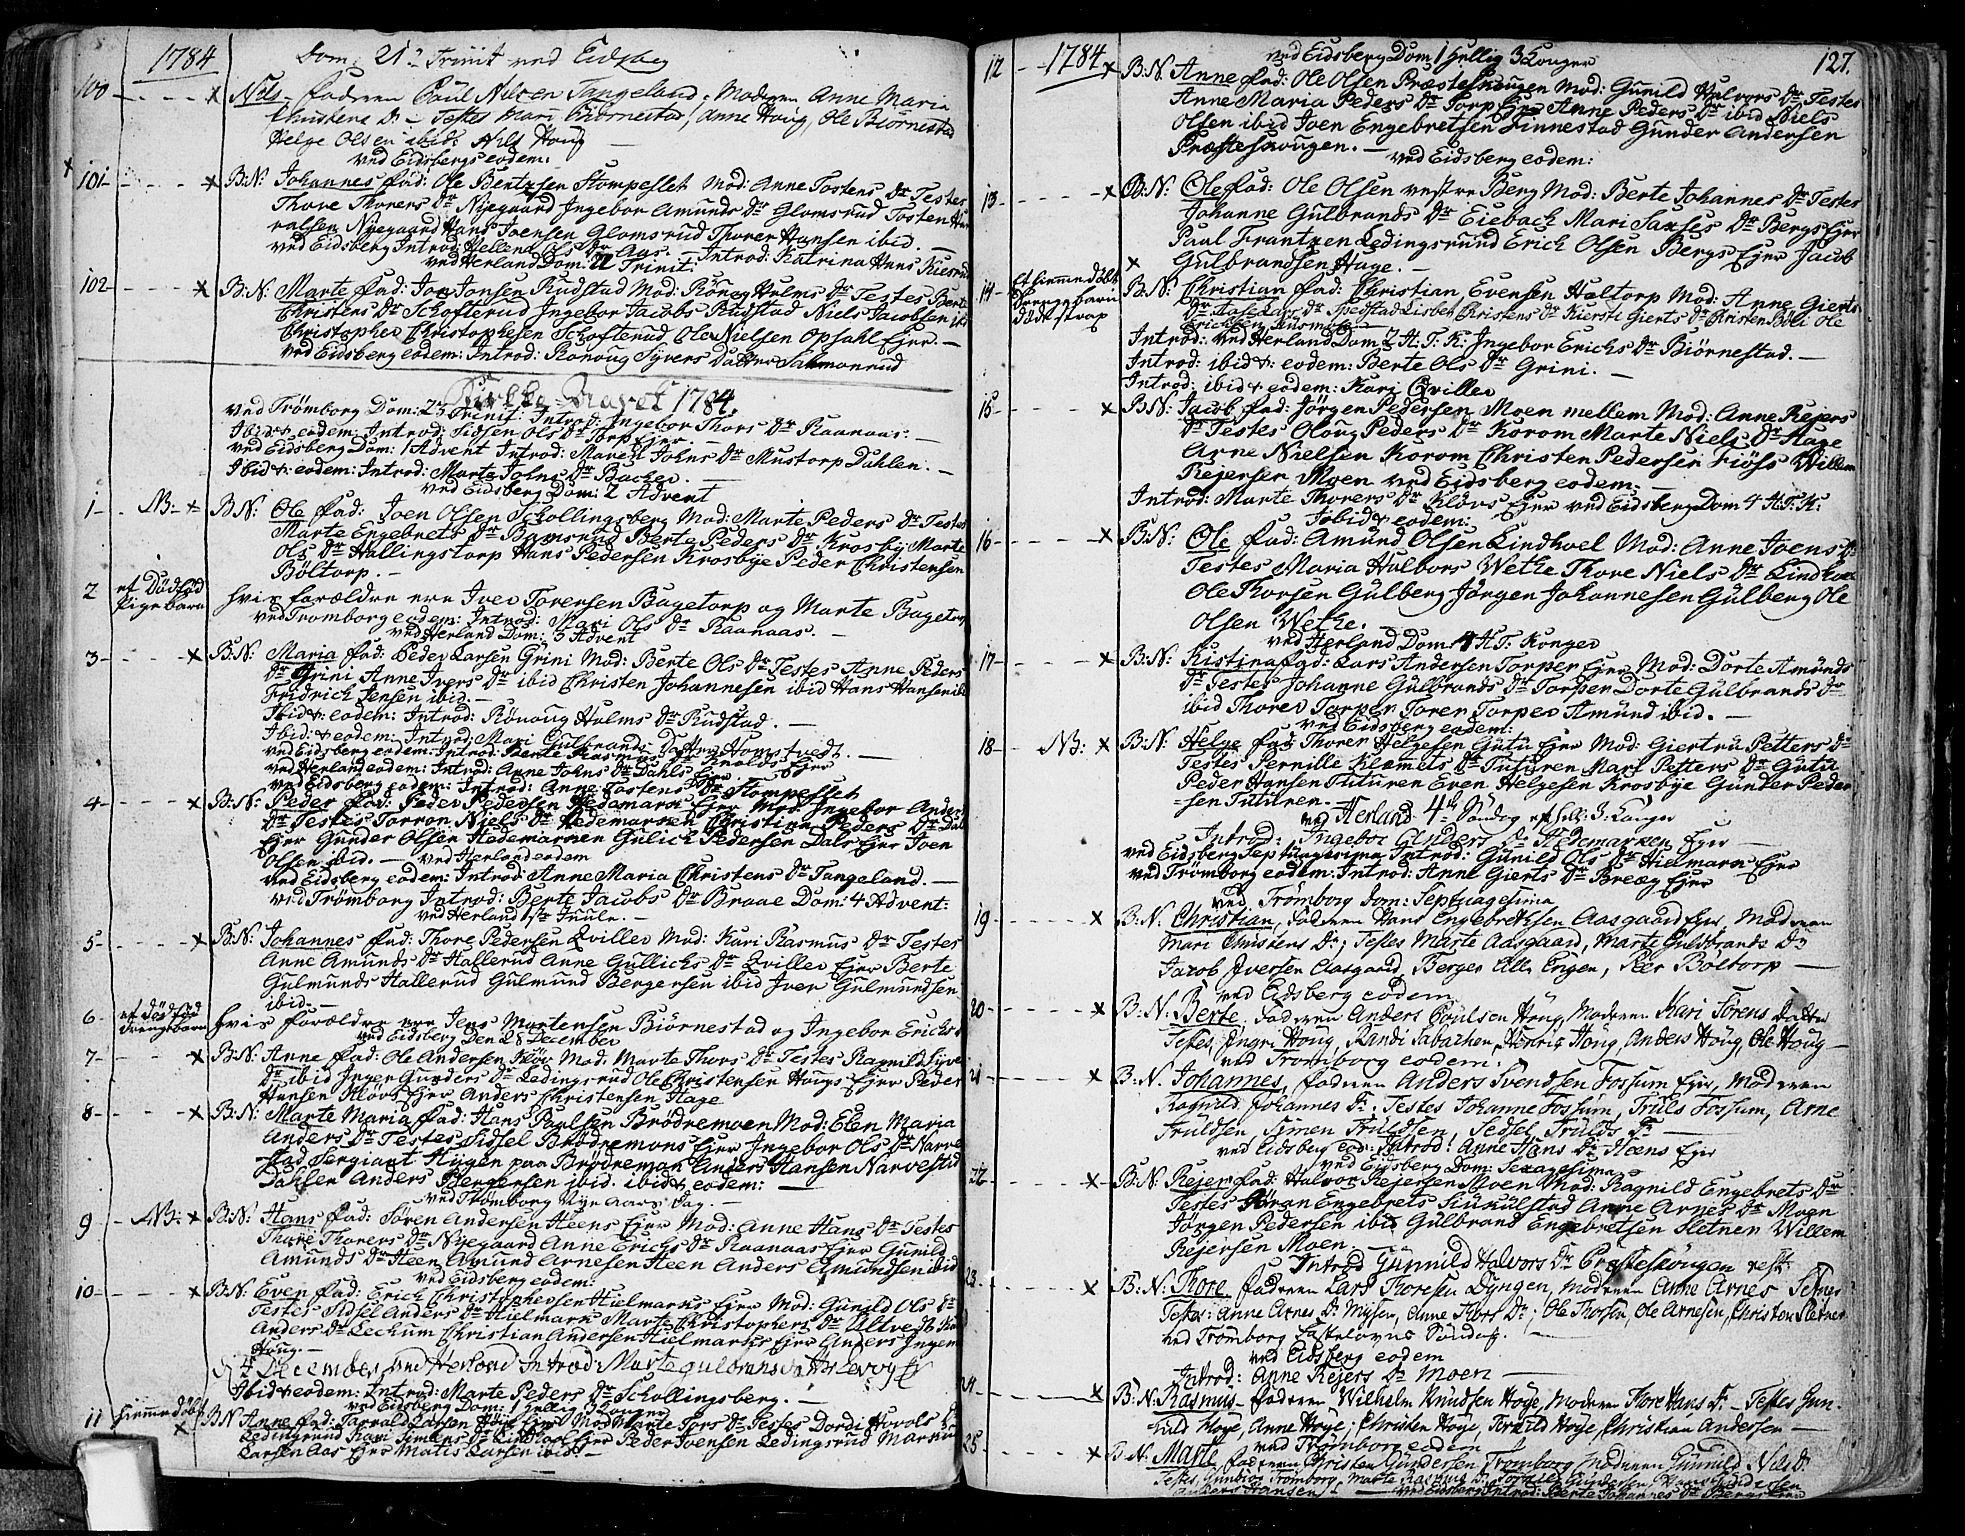 1784
Dom: 21 Trinit ved Eidsbg
100 Nils faderen Poul Nilsen Tangeland, Moderen Anne Maria
Christens Dr Testes Mari Biørnestad, Anne Houg, Ole Biørnestad
Helge Olsen ibid: Nils Houg
ved Eidsbergs eodem:
101 B:N: Johannes fad: Ole Bentzsen Stompeslet Mod: Anne Tostens Dr Testes
Thore Thorers Dr Nyegaard Ingebor Amunds Dr Glomsrud Tosten Har
ralsen Nyegaard Hans Joensen Glomsrud Thorer Hansen ibid.
ved Eidsberg Introd: Hellena Ols Dr Aas. Introd: Katrina Hans
ved Herland Dom: 22 Trinit:
102 B:N: Marte fad: Joen Jonsen Rudstad Mod: Rönoug Holms Dr Testes Berte
Christens Dr Schofterud Ingebor Jacobs Rudstad Niels Jacobsen ibd
Christopher Christophesen Schofterud Ole Nielsen Opsahl Ejer.
ved Eidsberg eodem: Introd: Ronoug Syvers Datter Salmonrud
Kirkke Aaret 1784.
ved Trömborg Dom: 23 Trinit: Introd: Ingebor Thors Dr Raanaas.
Ibid& eodem: Introd: Sidsen Ols Dr Torp Ejer.
ved Eidsberg Dom: 1 Advent Introd: Marett Johns Dr Mustorp Dahlen.
Ibid&: eodem: Introd: Marte Johns Dr Backer.
ved Eidsberg Dom: 2 Advent
1 NB: B:N: Ole fad: Joen Olsen Schollingsberg Mod: Marte Peders Dr Testes
Marte Engebrets Dr Berte Peders Dr Krosby Marte
Ols Dr Hallingstorp Hans Pedersen Krosbye Peder Christensen
Böltorp.
2 et Dødfød Pige barn hvis forældre ere Iver Torensen Bagetorp og Marte Bagetorp
ved Tromborg eodem: Introd: Mari Ols Dr Raanaas.
ved Herland Dom: 3 Advent
3 B:N: Maria fad: Peder Larsen Grini Mod: Berte Ols Dr Testes Anne Peders
Dr Grini Anne Ivers Dr ibid Christen Johannesen ibid Hans Hansen ibd
Fridrich Jensen ibid.
Ibid&: eodem: Introd: Rönoug Holms Dr Rudstad.
Ibid:& eodem: Introd: Mari Gulbrands Datter Homstvedt.
ved Eidsberg eodem: Introd: Berte Rasmus Dr Knolds Ejer
ved Herland eodem: Introd: Anne Johns Dr Dahls Ejer.
ved Eidsberg eodem: Introd: Anne Tostens Dr Stompeslet
4 B:N: Peder fad: Peder Pedersen Hedemark Ejer Mod: Ingebor Anders
Dr Testes Torron Niels Dr Hedemarken Christina Peders Dr Dal
Ejer Gunder Olsen Hedemarken Gulich Pedersen Dals Ejer Joen
Olsen ibid. ved Herland eodem
ved Eidsberg eodem: Introd: Anne Maria Christens Dr Tangeland.
ved Trömborg Introd: Berte Jacobs Dr Braae Dom: 4 Advent:
ved Herland 1ste Juule.
5 B:N: Johannes fad: Thore Pedersen Qviller Mod: Kari Rasmus Dr Testes
Anne Amunds Dr Hallerud Anne Gullichs Dr Qviller Ejer Berte
Gulmunds Hallerud Gulmund Bergersen ibid Iver Gulmundsen
ibid.
6 et dødfød drengebarn hvis forældre ere Jens Mortensen Biörnestad og Ingebor Erichs Dr
ved Eidsberg Den 28 December
7 B:N: Anne fad: Ole Andersen Klöv Mod: Marte Thors Dr Testes Ragnild Syvers
Dr ibid Inger Gunders Dr Ledingsrud Ole Christensen Hougs Ejer Peder
Hansen Klövs Ejer Anders Christensen Hage
8 B:N: Marte Maria fad: Hans Paulsen Brödremoen Mod: Elen Maria
Anders Dr Testes Sidsel Brödremons Ejer Ingebor Ols Dr Narve
stad Sergiant Hygen paa Brödremon Anders Hansen Narvestad
Dahlen Anders Bergersen ibid: ibid& eodem:
ved Trömborg Nye aars Dag.
9 NB: B:N: Hans fad: Sören Andersen Heens Ejer Mod: Anne Hans Dr Testes
Thore Thorers Dr Nyegaard Anne Erichs Dr Raanaas Ejer Gunild
Amunds Dr Heen Amund Arnesen Heen Anders Amundsen ibid
ved Eidsberg eodem:
10 B:N: Even fad: Erich Christophersen Hielmarks Ejer Mod: Gunild Ols Dr
Testes Sidsel Anders Dr Hielmark Marte Christophers Dr Ultvedt
Anders Dr Leckum Christian Andersen Hielmarks Ejer Anders
Houg.
4 December ved Herland Introd: Marte gulbrands
Ibid& eodem: Introd: Marte Peders Dr Schollingsberg.
ved Eidsberg Dom: 1 hellig 3 Konger
11 hiemmedöbt B:N: Anne fad: Larsen Höje Ejer Mod: Marte Tors Dr Testes Dordi
Ledingsrud Kari Simens Dr Lindhoel Ejer Peder Joensen Ledingsrud
Larsen Aas Ejer Matis Larsen ibid.
127.
1784
ved Eidsberg Dom 1 hellig 3 Konger
12 B:N: Anne fad: Ole Olsen Præsteskougen Mod: Gunild Halvors Dr Testes
Anne Maria Peders Dr Torp Ejer Anne Peders Dr ibid Niels
Olsen ibid Joen Engebretsen Finnestad Gunder Andersen
Præsteskougen.
ved Eidsberg eodem:
13 B:N: Ole fad: Ole Olsen vestre Berg Mod: Berte Johannes Dr Testes
Johanne Gulbrands Dr Eiebach Mari Saxses Dr Bergs Ejer
Paul Frantzen Ledingsruud Erich Olsen Bergs Ejer Jacob
Gulbrandsen Hage.
14 et hiemmedöbt Drenge barn döde strax B:N: Christian fad: Christian Evensen Haltorp Mod: Anne Gierts
Dr Aase Lars Dr Spedstad Lisbet Christens Dr Kiersti Gierts Dr Christen Böli Ole
Introd: ved Herland Dom 2 H.T.K: Ingebor Erichs Dr Biörnestad.
Introd: ibid&: eodem: Berte Ols Dr Grini.
Introd: ibid& eodem: Kari Qviller
15 B:N: Jacob fad: Jörgen Pedersen Moen mellem Mod: Anne Rejers
Dr Testes Oloug Peders Dr Korom Marte Niels Dr Hage
Arne Nielsen Korom Christen Pedersen Fiöss Willem
Rejersen Moen ved Eidsberg eodem.
Introd: Marte Thorers Dr Klövs Ejer ved Eidsberg Dom 4 H.T.K:
Ibid& eodem:
16 B:N: Ole fad: Amund Olsen Lindhoel Mod: Anne Joens Dr
Testes Maria Halvors Wethe Thore Niels Dr Lindhoel
Ole Thorsen Gulberg Jörgen Johannesen Gulberg Ole
Olsen Wethe.
ved Herland Dom: 4 H.T. Konger
17 B:N: Kistina fad: Lars Andersen Torper Ejer Mod: Dorte Amunds
Dr Testes Johanne Gulbrands Dr Torper Dorte Gulbrands Dr
ibid Thorer Torper Torer Torper Amund ibid.
ved Eidsberg eodem:
18 NB: B:N: Helge fad: Thorer Helgesen Gutu Ejer Mod: Giertru Petters Dr
Testes Pernille Klemmets Dr Tuturen Mari Petters Dr Gutu
Peder Hansen Tuturen Even Helgesen Krosbye Gunder Peder
-sen Tuturen.
ved Herland 4de Söndag eft. hell: 3. Konger
Introd: Ingebor Anders Dr Hedemarken Ejer
ved Eidsberg Septuagesima Introd: Gunild Ols Dr Hielmark Ejer
ved Trömborg eodem: Introd: Anne Gierts Dr Breæg Ejer
ved Trömborg Dom: Septuagesima
19 B:N: Christian, faderen Hans Engebrethsen Aasgaard Ejer, Moderen
Mari Christens Dr; Testes Marte Aasgaard, Marte Guldbrands Dr
Jacob Iversen Aasgaard, Berger Engen, Peer Böltorp
ved Eidsberg eodem
20 B:N: Berte faderen Anders Poulsen Höug, Moderen Kari Sörens Datter
Testes, Ingri Höug, Randi Sabachen, Henric Höug, Anders Höug, Ole Höug
ved Trömborg eodem:
21 B:N. Johannes, faderen Anders Svendsen Fossum Ejer, Moderen
Ragnild Johannes Dr; Testes Johanne Fossum, Truls Fossum, Arne
Truldsen, Simen Truldsen, Sedsel Trulds Dr
ved Eidsberg eod: Introd: Anne Hans Dr Heens Ejer
ved Eidsberg Dom: Sexagesima
22 B:N: Rejer fad: Halvor Rejersen Moen Mod: Ragnild Engebrets Dr
Testes Jöran Engebrets Kukulstad Anne Arnes Dr Moen
Jörgen Pedersen ibid Gulbrand Engebretsen Sletner Willem
Rejersen Moen.
Introd Gunnild Halvors Dr Præsteskougen vest:
23 B:N. Thore, faderen Lars Thoresen Dyngen, Moderen Anne Arnes
Testes: Anne Arnes Dr Mysen, Anne Thors Dr; Ole Thorsen, Ole Arnesen, Christen Sletner
ved Trömborg Fastelavns Söndag.
ved Eidsberg eodem
Introd: Anne Rejers Dr Moen
24 B:N. Rasmus faderen Wilhelm Knudsen Höye, Moderen Thore Hans Dr Testes Gun-
hild Höye, Anne Höye; Christen Höye, Torkild Höye, Christian Andersen
ved Trömborg eodem
25 B:N. Marte faderen Christen Gundersen Trömborg, Moderen Gunnild Nils Dr
Testes, Trömborg, Marte Rasmus Dr Gundersen, Hans
Hansen ved Eidsberg Introd: Berte Johannes Dr Berg